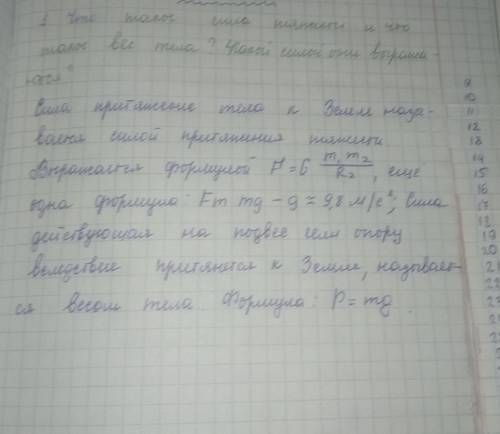 1. Что такое сила тяжести и что
такое вес тела? Какой силой они выража-
ются?
Сила притяжение тела к Земле назы-
вается силой притяжения тяжести
Выражается формулой F=G m₁ m₂ / R₂, еще
одна формула: Fт mg - g ≈ 9,8 м/с²; Сила
действующая на подвес или опору
вследствие притянется к Земле, называет-
ся весом тела Формула: P = mg.
9
10
11
12
13
14
15
16
17
18
19
20
21
22
23
24